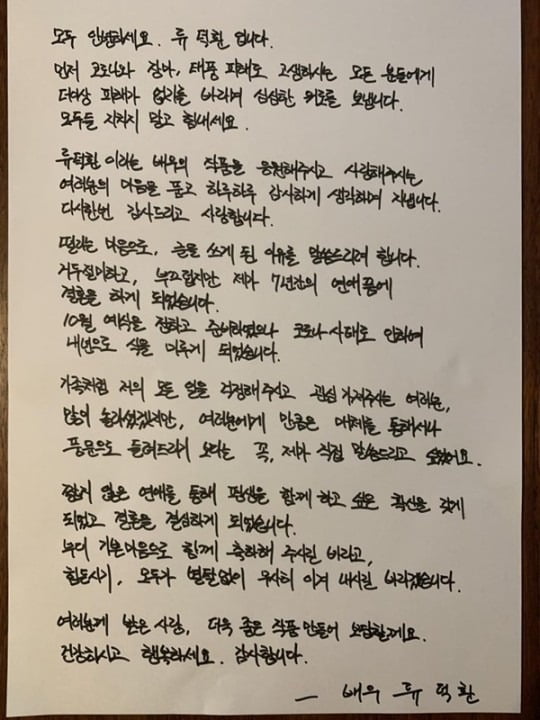 모두 안녕하세요. 류 덕환 입니다.
먼저 코로나와 장마, 태풍 피해로 고생하시는 모든 분들에게
더이상 피해가 없기를 바라며 심심한 위로를 보냅니다.
모두들 지치지 말고 힘내세요.
류덕환 이라는 배우의 작품을 응원해주시고 사랑해주시는
여러분의 마음을 품고 하루하루 감사하게 생각하며 지냅니다.
다시한번 감사드리고 사랑합니다.
떨리는 마음으로, 글을 쓰게 된 이유를 말씀드리려 합니다.
거두절미하고, 부끄럽지만 제가 7년간의 연애끝에
결혼을 하게 되었습니다.
10월 예식을 정하고 준비하였으나 코로나 사태로 인하여
내년으로 식을 미루게 되었습니다.
가족처럼 저의 모든 일을 걱정해주시고 관심 가져주시는 여러분,
많이 놀라셨겠지만, 여러분에게 만큼은 매체를 통해서나
풍문으로 들려드리기 보다는 꼭, 제가 직접 말씀드리고 싶었어요.
짧지 않은 연애를 통해 평생을 함께 하고 싶은 확신을 갖게
되었고 결혼을 결심하게 되었습니다.
부디 기쁜마음으로 함께 축하해 주시길 바라고,
힘든시기, 모두가 별탈없이 무사히 이겨 내시길 바라겠습니다.
여러분께 받은 사랑, 더욱 좋은 작품 만들어 보답할게요.
건강하시고 행복하세요. 감사합니다.
— 배우 류 덕 환